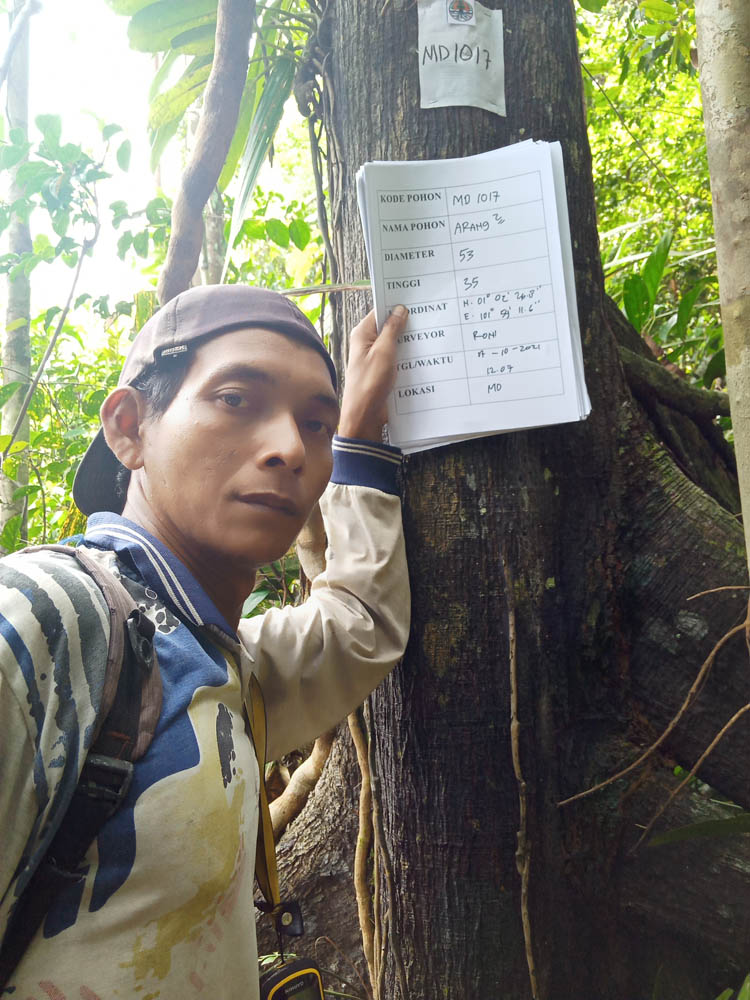 MD1017
KODE POHON MD 1017
NAMA POHON ARANG2
DIAMETER 53
TINGGI 35
OORDINAT N: 01° 02' 24.8"
E: 101° 59' 11.6"
URVEYOR RONI
GL/WAKTU 17-10-2021
12.07
LOKASI MD
GARMIN